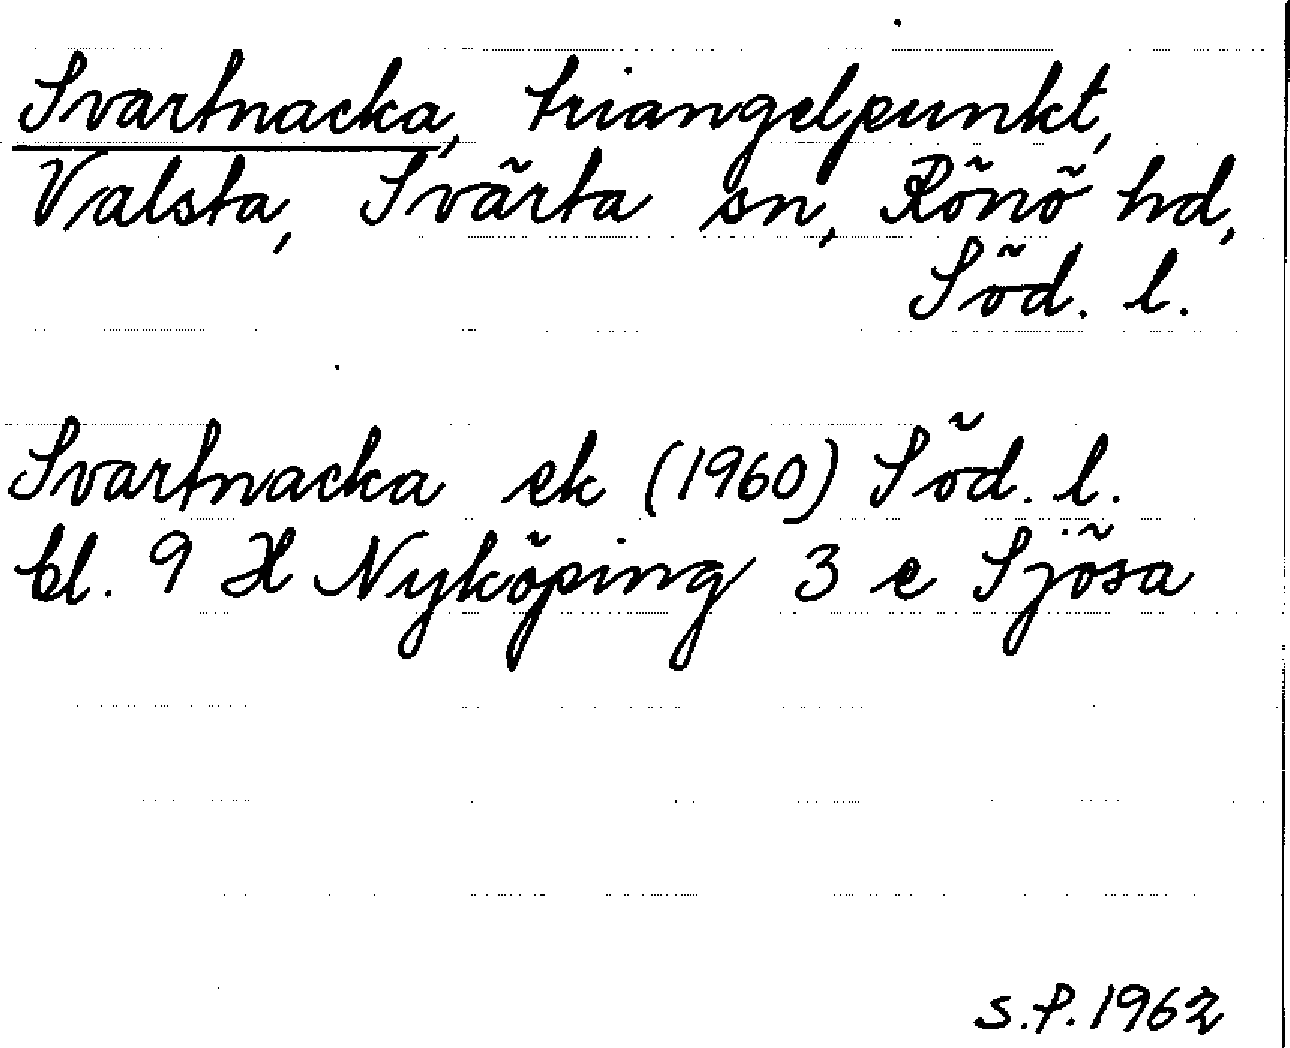 Svartnacka, triangelpunkt,
Valsta, Svärta sn, Rönö hd,
Söd. l.
Svartnacka ek (1960) Söd. l.
bl. 9 H Nyköping 3 e Sjösa
S.P. 1962